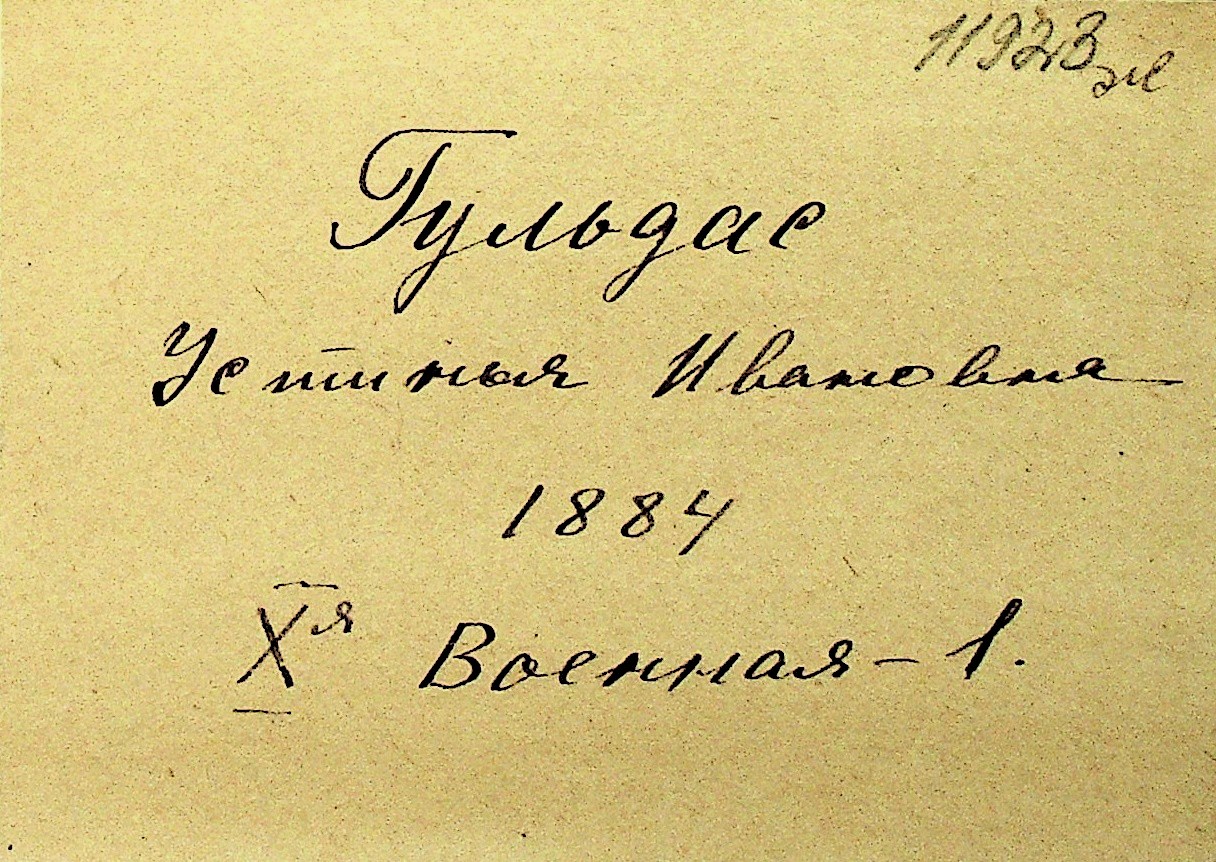 11923 же
Гульдас
Устинья Ивановна
1884
Xя Военная - 1.